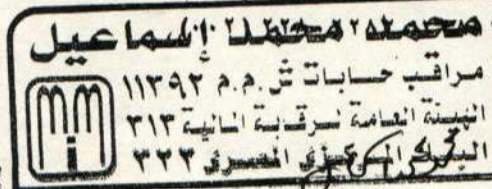 محمد محمد إسماعيل
مراقب حسابات س.م.م ١١٣٩٢
الهيئة العامة للرقابة المالية ٣١٣
البنك المركزي المصرى ٣٢٣